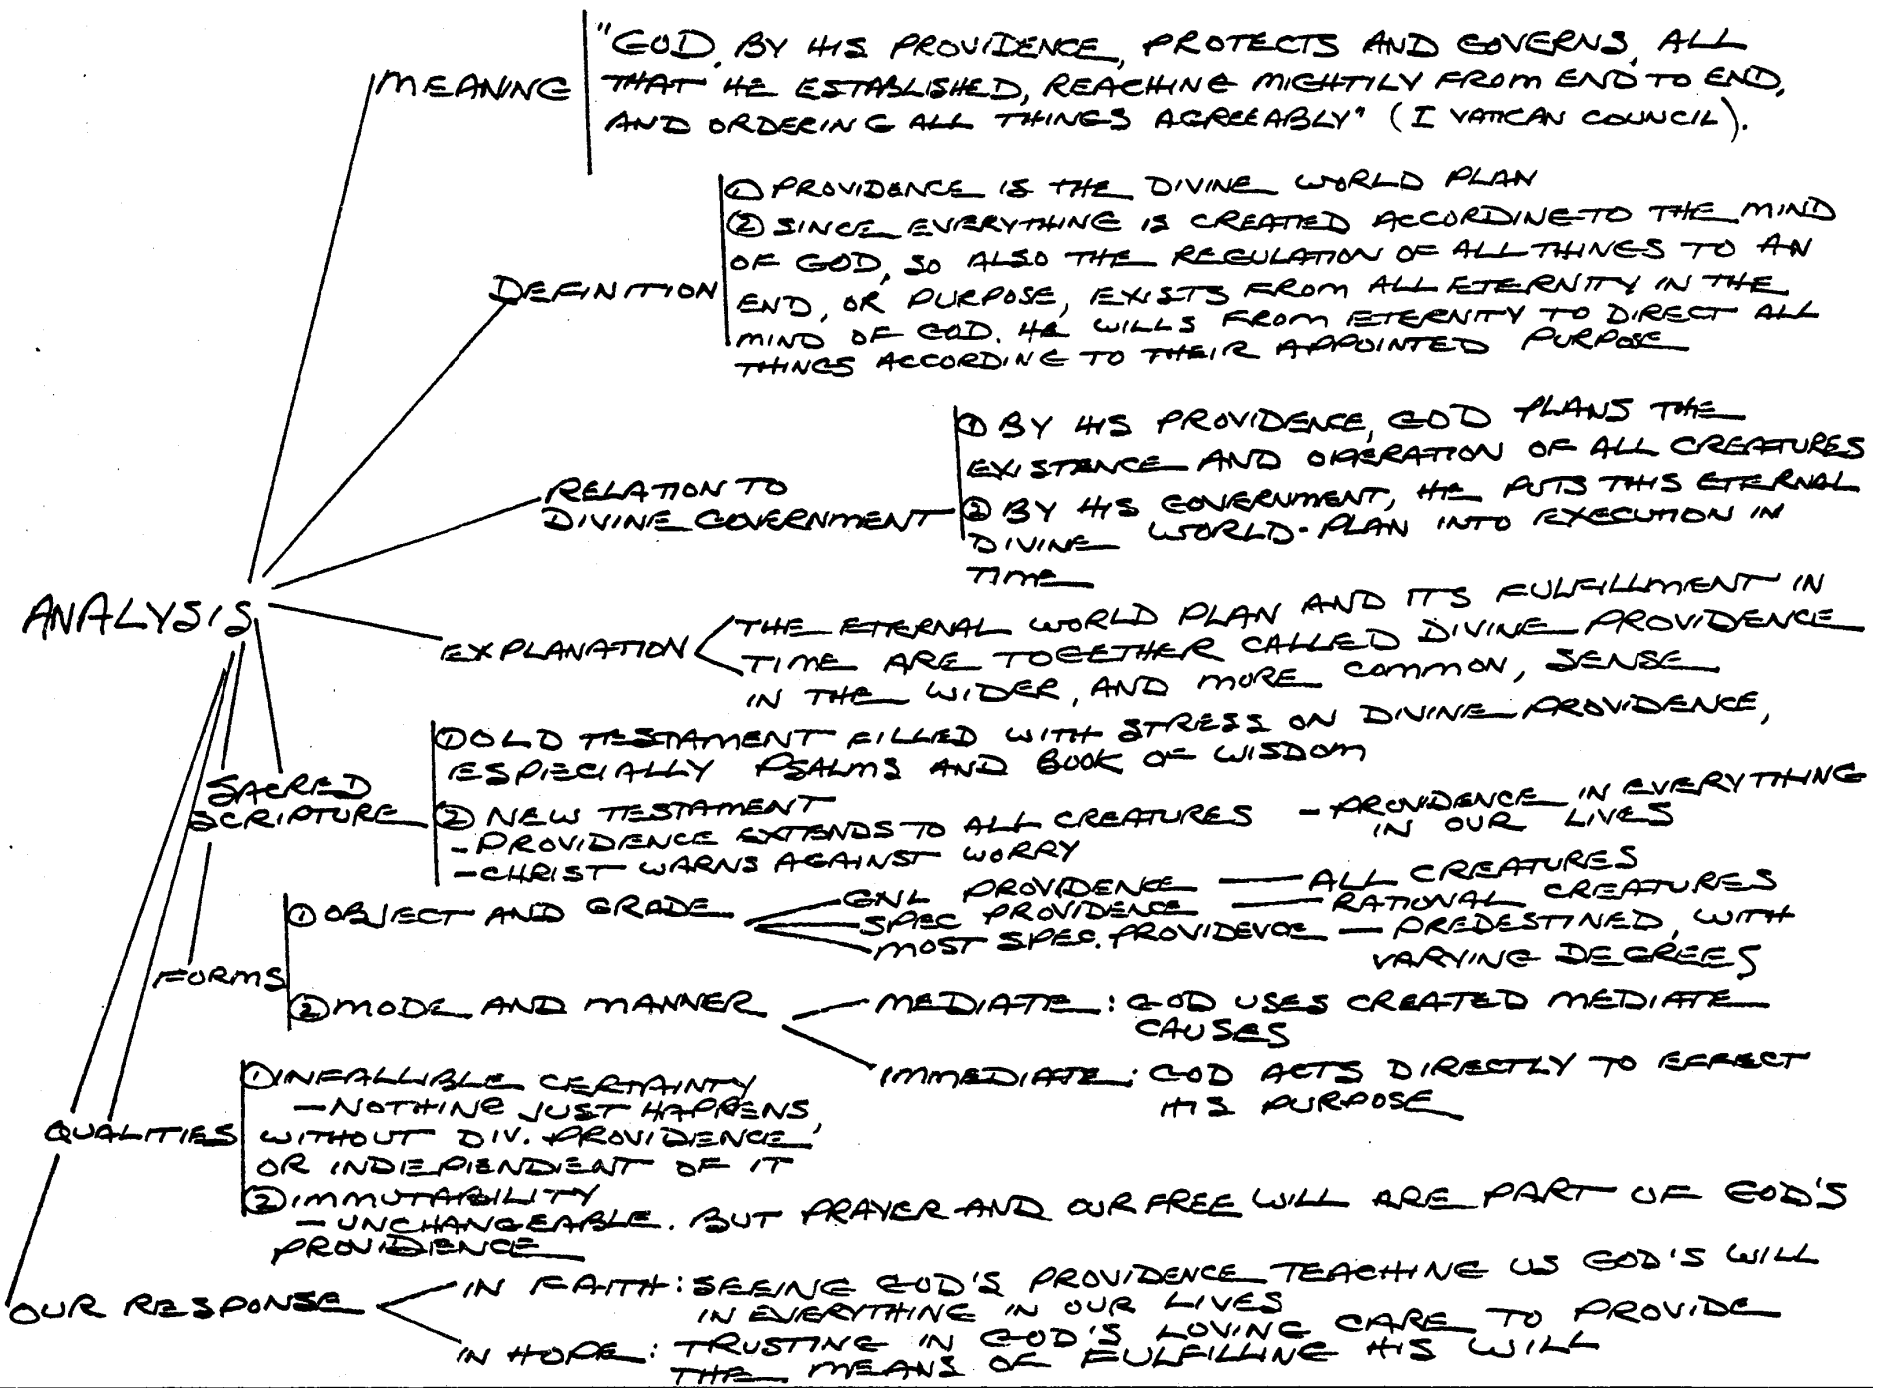 MEANING
"GOD, BY HIS PROVIDENCE, PROTECTS AND GOVERNS, ALL
THAT HE ESTABLISHED, REACHING MIGHTILY FROM END TO END,
AND ORDERING ALL THINGS AGREEABLY" (I VATICAN COUNCIL).
DEFINITION
① PROVIDENCE IS THE DIVINE WORLD PLAN
② SINCE EVERYTHING IS CREATED ACCORDING TO THE MIND
OF GOD, SO ALSO THE REGULATION OF ALL THINGS TO AN
END, OR PURPOSE, EXISTS FROM ALL ETERNITY IN THE
MIND OF GOD. HE WILLS FROM ETERNITY TO DIRECT ALL
THINGS ACCORDING TO THEIR APPOINTED PURPOSE
RELATION TO
DIVINE GOVERNMENT
① BY HIS PROVIDENCE, GOD PLANS THE
EXISTENCE AND OPERATION OF ALL CREATURES
② BY HIS GOVERNMENT, HE PUTS THIS ETERNAL
DIVINE WORLD-PLAN INTO EXECUTION IN
TIME
ANALYSIS
EXPLANATION
THE ETERNAL WORLD PLAN AND ITS FULFILLMENT IN
TIME ARE TOGETHER CALLED DIVINE PROVIDENCE
IN THE WIDER, AND MORE COMMON, SENSE
SACRED
SCRIPTURE
① OLD TESTAMENT FILLED WITH STRESS ON DIVINE PROVIDENCE,
ESPECIALLY PSALMS AND BOOK OF WISDOM
② NEW TESTAMENT
- PROVIDENCE EXTENDS TO ALL CREATURES - PROVIDENCE IN EVERYTHING
IN OUR LIVES
- CHRIST WARNS AGAINST WORRY
FORMS
① OBJECT AND GRADE
GNL PROVIDENCE — ALL CREATURES
SPEC PROVIDENCE — RATIONAL CREATURES
MOST SPEC. PROVIDENCE — PREDESTINED, WITH
VARYING DEGREES
② MODE AND MANNER
MEDIATE: GOD USES CREATED MEDIATE
CAUSES
IMMEDIATE: GOD ACTS DIRECTLY TO EFFECT
HIS PURPOSE
QUALITIES
① INFALLIBLE CERTAINTY
- NOTHING JUST HAPPENS,
WITHOUT DIV. PROVIDENCE,
OR INDEPENDENT OF IT
② IMMUTABILITY
- UNCHANGEABLE. BUT PRAYER AND OUR FREE WILL ARE PART OF GOD'S
PROVIDENCE
OUR RESPONSE
IN FAITH: SEEING GOD'S PROVIDENCE TEACHING US GOD'S WILL
IN EVERYTHING IN OUR LIVES
IN HOPE: TRUSTING IN GOD'S LOVING CARE TO PROVIDE
THE MEANS OF FULFILLING HIS WILL